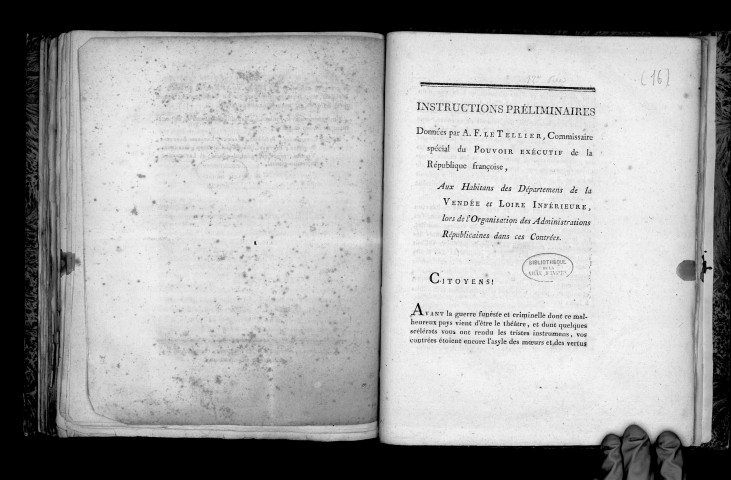 (16)
INSTRUCTIONS PRÉLIMINAIRES
Données par A. F. LE TELLIER, Commissaire
spécial du POUVOIR EXÉCUTIF de la
République françoise,
Aux Habitans des Départemens de la
VENDÉE et LOIRE INFÉRIEURE,
lors de l'Organisation des Administrations
Républicaines dans ces Contrées.
BIBLIOTHÈQUE
DE LA
CITOYENS!
AVANT la guerre funeste et criminelle dont ce mal-
heureux pays vient d'être le théâtre, et dont quelques
scélérats vous ont rendu les tristes instrumens, vos
contrées étoient encore l'asyle des mœurs et des vertus